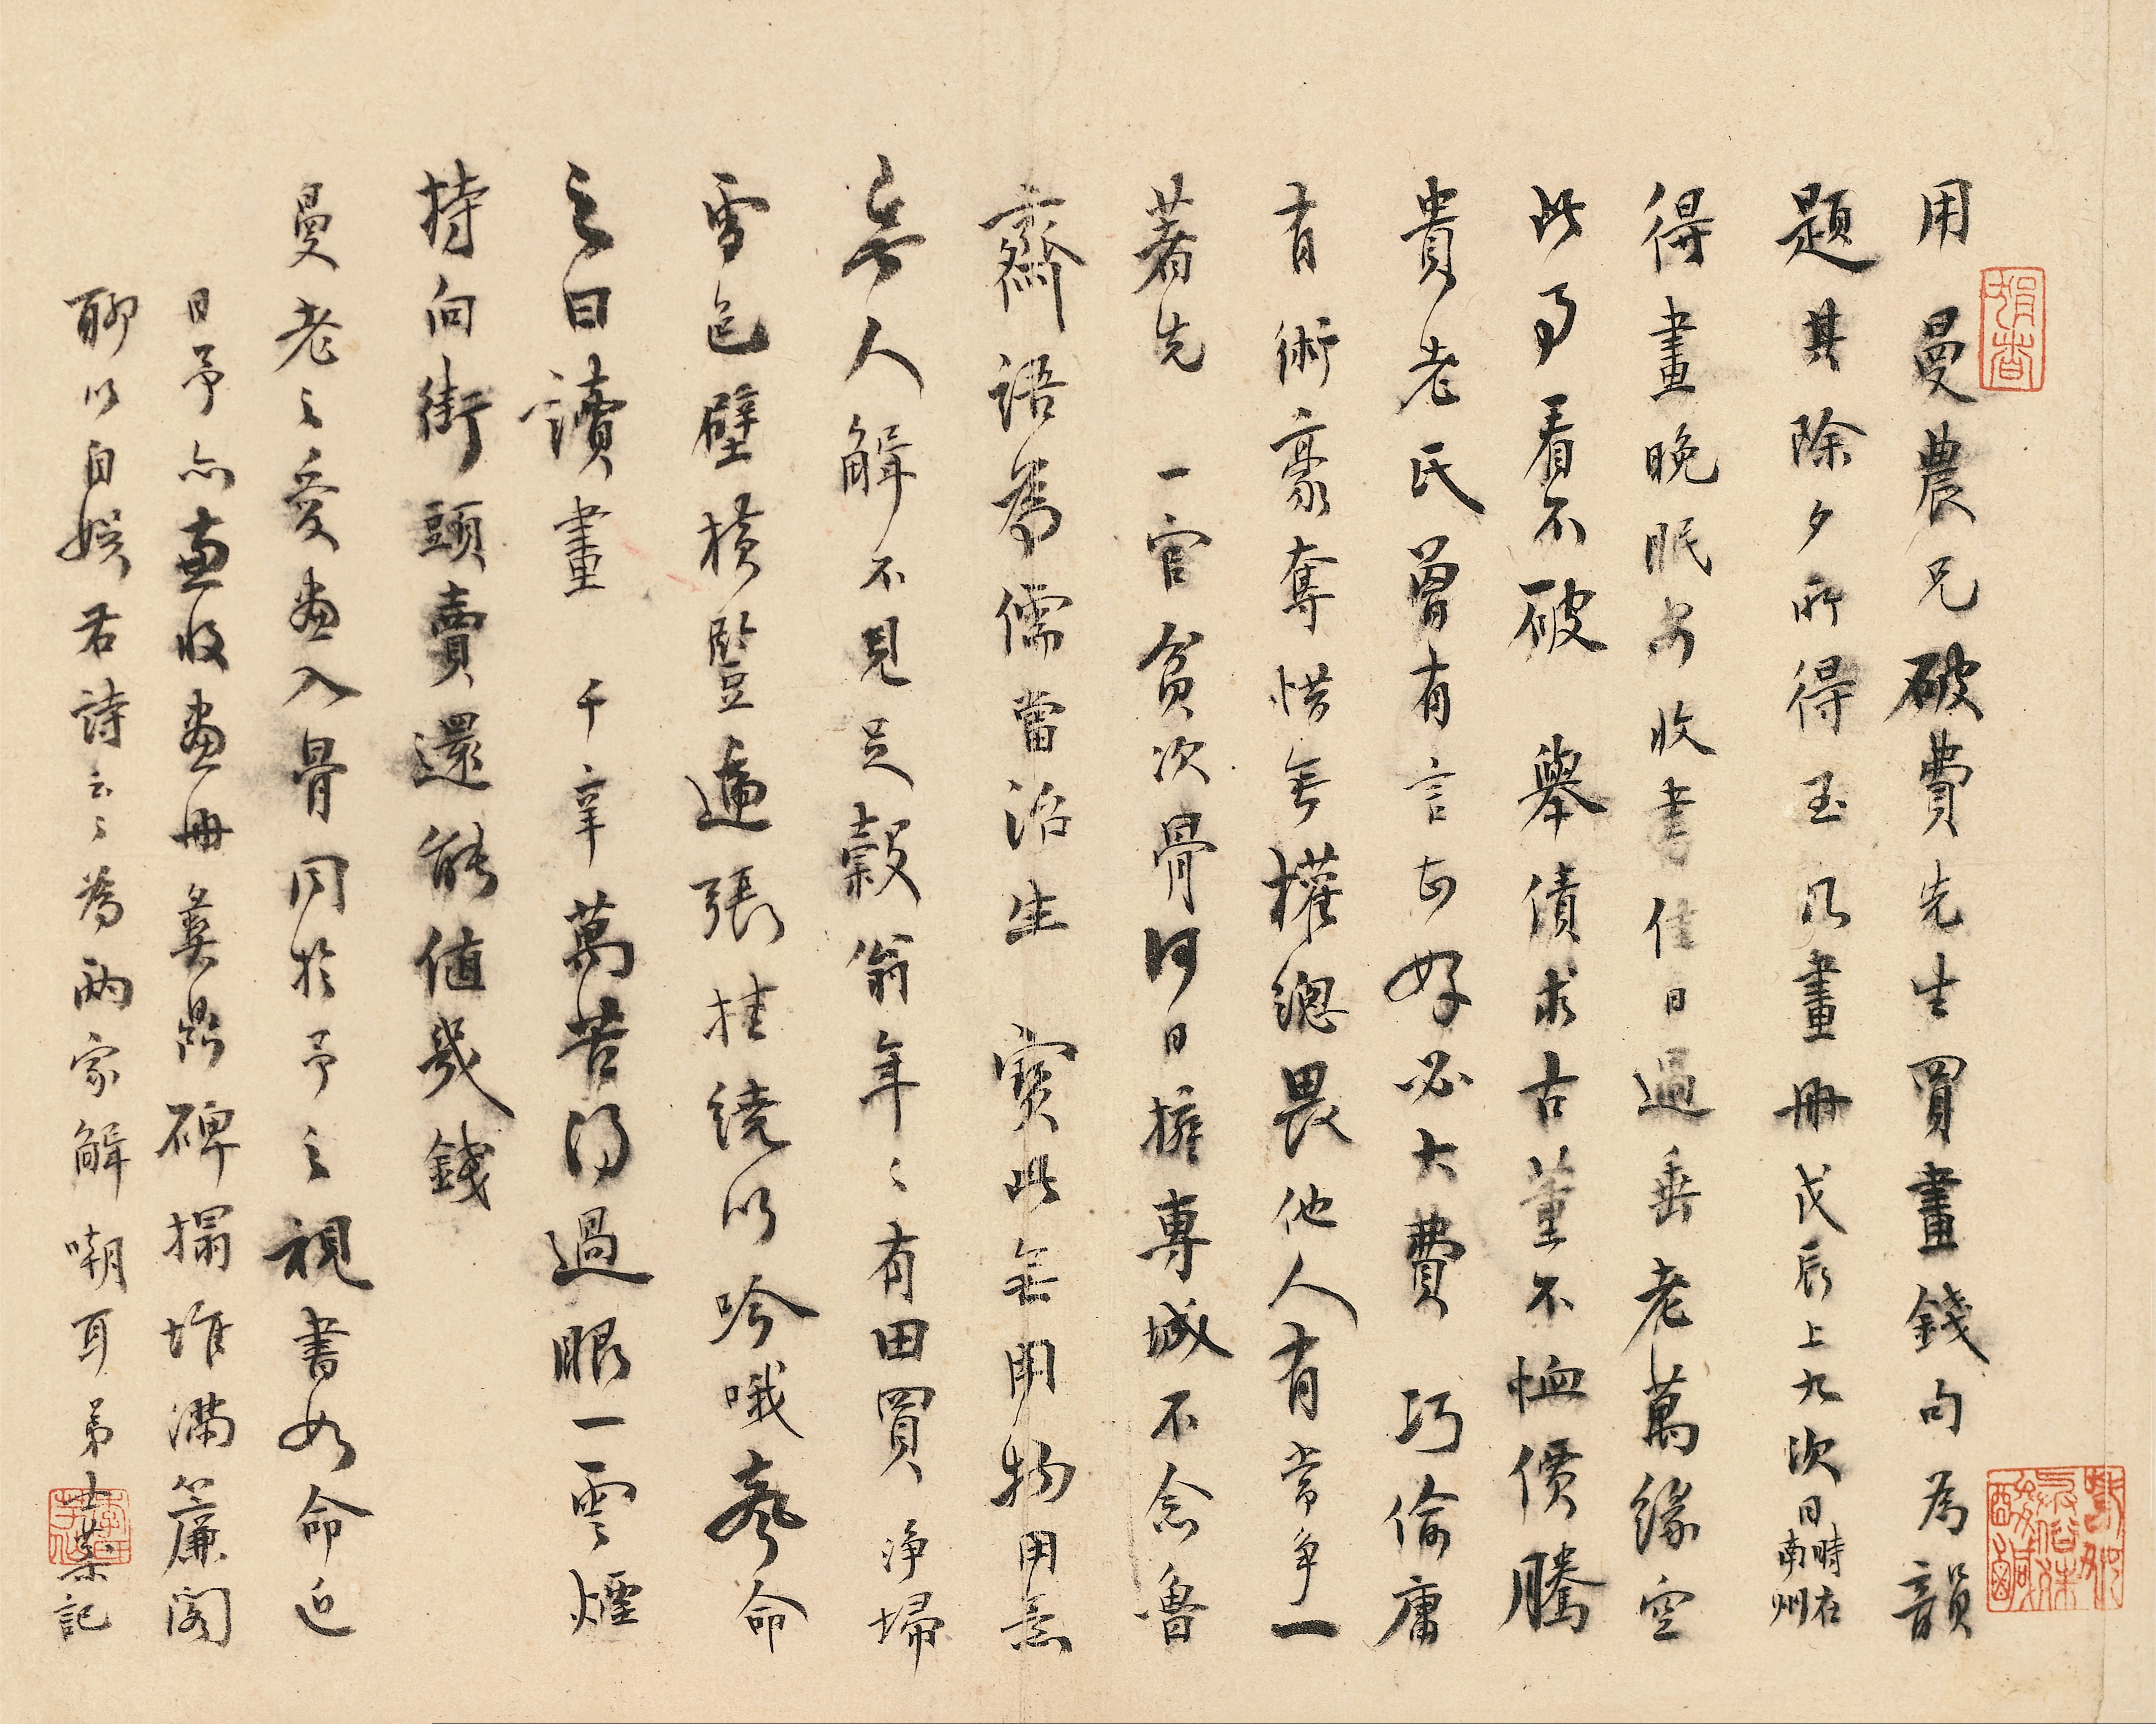 用曼農兄破費先生買畫錢句為韻
題其除夕所得玉几畫冊戊辰上九次日時在南州
得畫晚眠安收書佳日過垂老萬緣空
此事看不破 舉債求古董不恤價騰
貴老氏曾有言甚好必大費 巧偷庸
有術豪奪惜無權總畏他人有常爭一
著先 一官貧次骨何日擁專城不念魯
齋語為儒當治生 寶此無用物用意
無人解不見足穀翁年〻有田買 淨埽
雪色壁橫豎遍張挂繞以吟哦聲命
之曰讀畫 千辛萬苦得過眼一雲煙
持向街頭賣還能值幾錢
曼老之愛畫入骨同於予之視書如命近
日予亦兼收畫冊彝鼎碑搨堆滿簾閣
聊以自娛君詩云〻為兩家解嘲耳弟士棻記